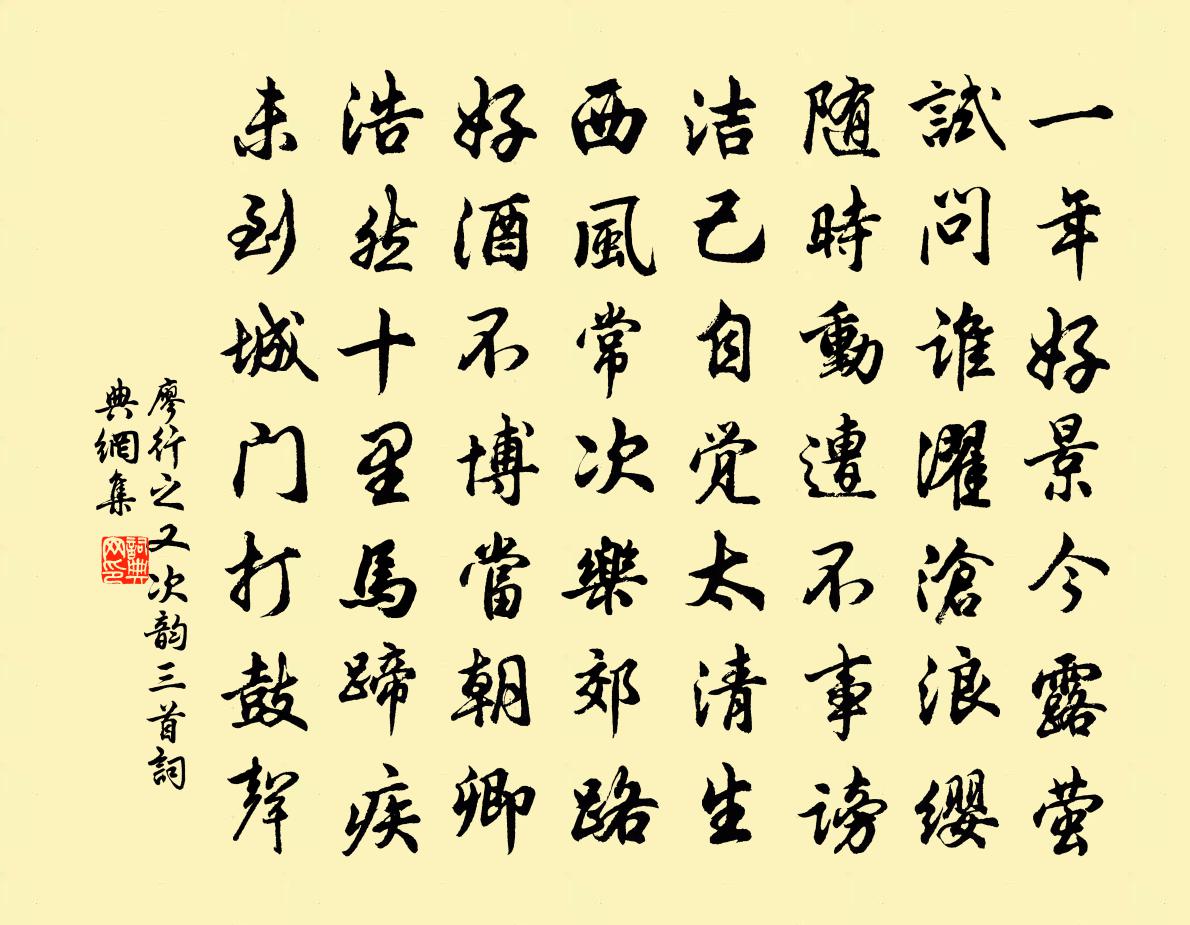 一年好景今露萤
試问谁濯滄浪缨
随時動遭不事谤
洁己自觉太清生
西風常次樂郊路
好酒不博當朝卿
浩然十里馬蹄疾
未到城门打鼓聲
廖行之又次韵三首詞
典網集
詞典網印